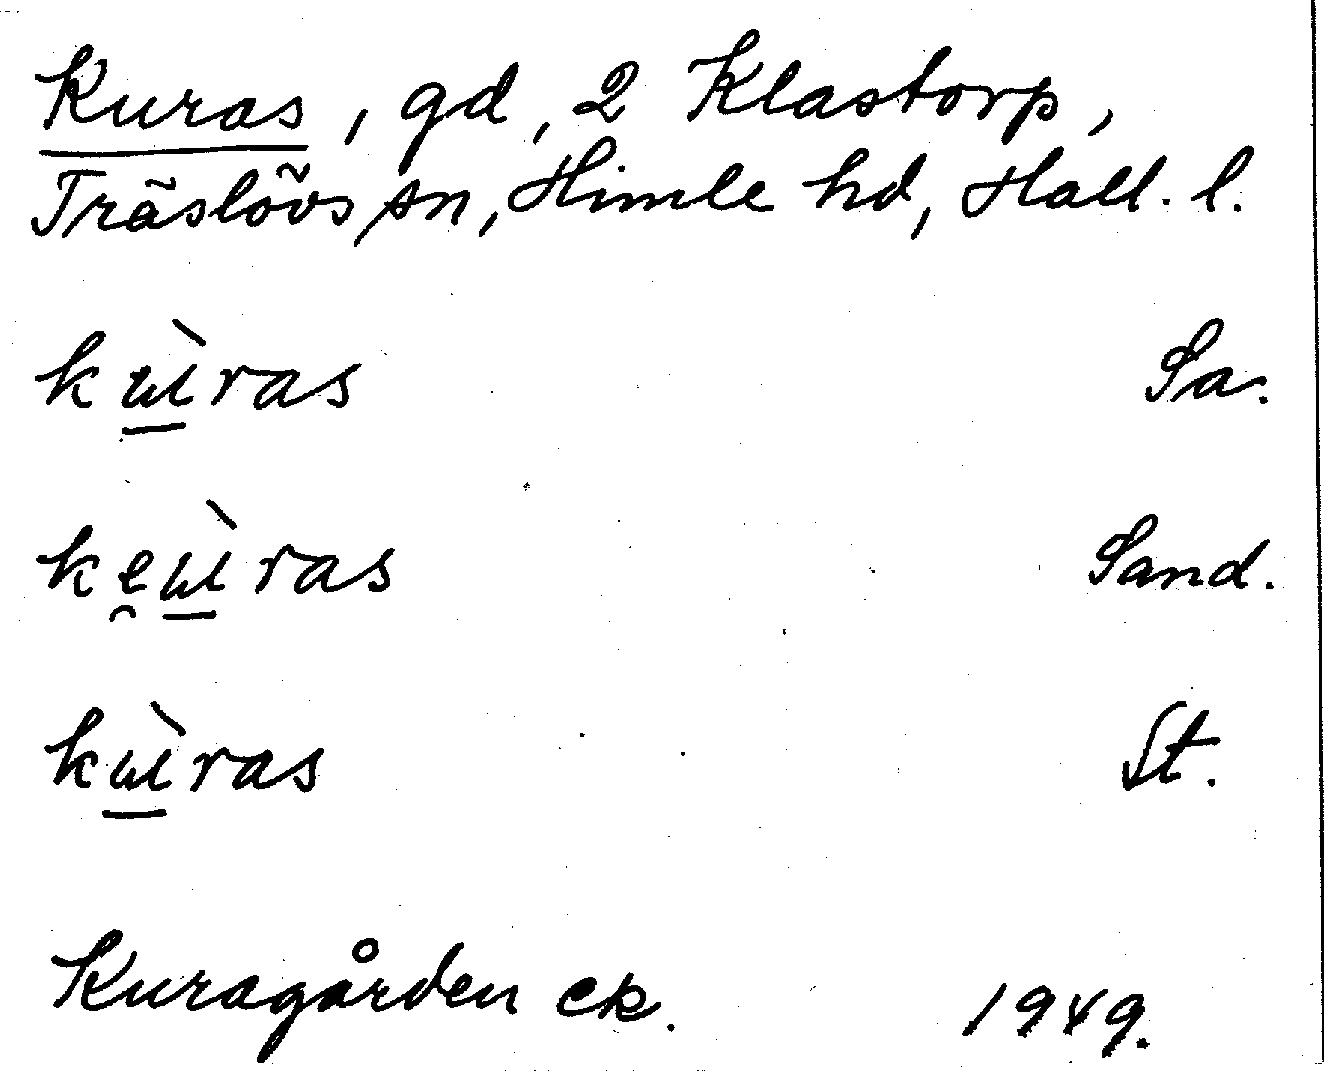 Kuras, gd, 2 Klastorp,
Träslövs sn, Himle hd, Hall. l.
kɯ̱̀ras Sa.
ke̯ɯ̱̀ras Sand.
kɯ̱̀ras St.
Kuragården ek. 1949.